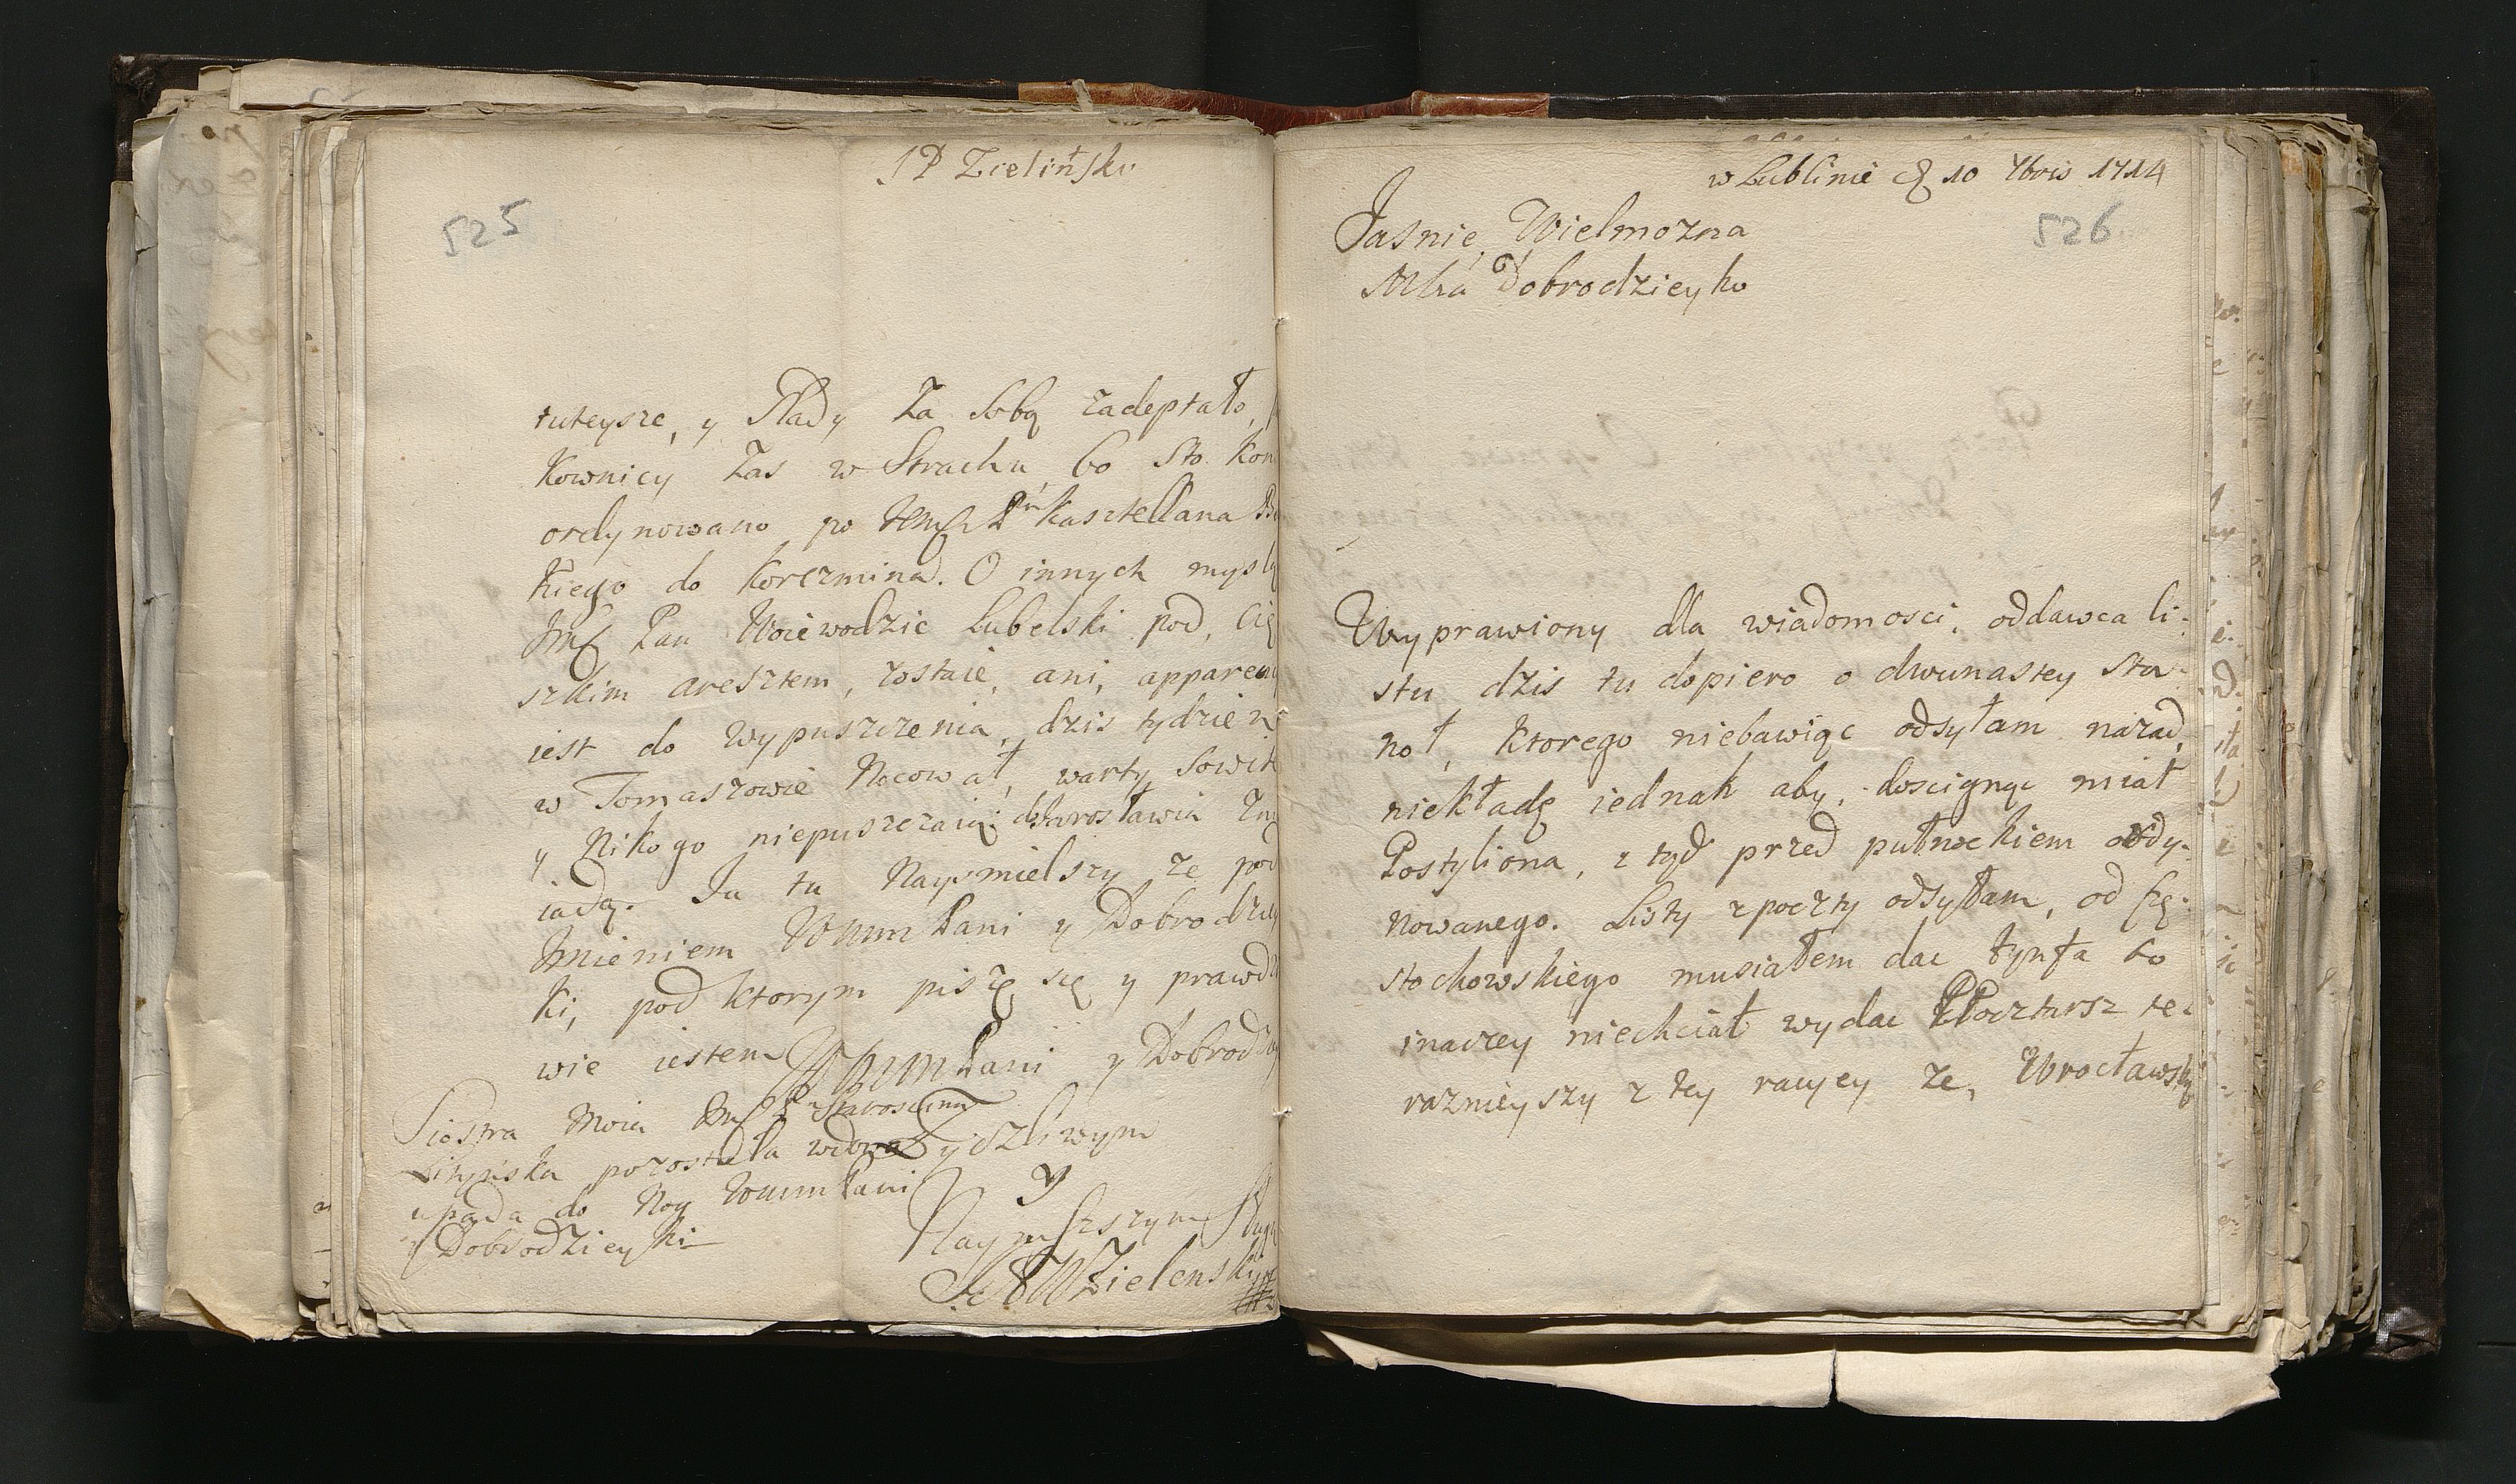 JP Zielinsko
525
tuteysze, y Slady Za Sobą zadeptało,
kownicy Zas w Strachu bo Sto. Kon
ordynowano po kasztellana
kiego do korczmina. O innych mysly
Jmſ Pan Woiewodzic Lubelski pod, Cię
szkim aresztem, zostaie, ani, apparen
iest do Wypuszczenia, dzis tydzien
w Tomaszowie Nocował, warty Sowite
y Nikogo niepuszczaią
iadą. Ja tu Naysmielszy ze pod
Jmieniem Wmm Pani y Dobrodziey
ki, pod ktorym piszę się y prawdzi
wie iestem Wmm Pani y Dobrodziey
Siostra Moia Jmſ Staroscina
pozostała wdowa Zyczliwym
upada do Nog Wmm Pani y
Dobrodzieyki
Naym Sługą
Zielenski
w Lublinie 10 7bris 1714
526
Jasnie Wielmozna
Mbra Dobrodzieyko
Wyprawiony dla wiadomosci, oddawca li-
stu dzis tu dopiero o dwunastey sta-
noł, ktorego niebawiąc odsyłam nazad,
niekładę iednak aby, doscignąc miał
Postyliona, z tyd przed pułnockiem ordy-
nowanego. Listy zpoczty odsyłam, od Czę-
stochowskiego musiałem dac tynfa bo
inaczey niechciał wydac Pocztarsz te-
raznieyszy z tey racyey ze, Wrocławsky